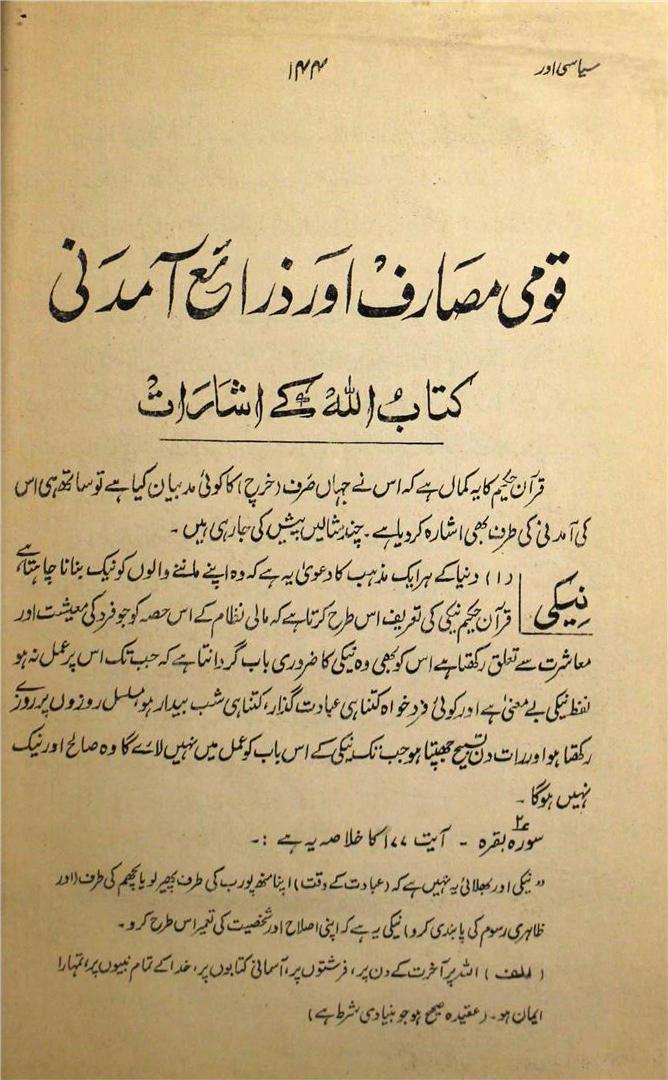 سیاسی اور
۱۴۴
قومی مصارف اور ذرائع آمدنی
کتاب اللہ کے اشارات
قرآن حکیم کا یہ کمال ہے کہ اس نے جہاں صَرف (خرچ) کا کوئی مد بیان کیا ہے تو ساتھ ہی اس
کی آمدنی کی طرف بھی اشارہ کر دیا ہے۔ چند مثالیں پیش کی جا رہی ہیں۔
نیکی
(۱) دنیا کے ہر ایک مذہب کا دعویٰ یہ ہے کہ وہ اپنے ماننے والوں کو نیک بنانا چاہتا ہے
قرآن حکیم نیکی کی تعریف اس طرح کرتا ہے کہ مالی نظام کے اس حصہ کو جو فرد کی معیشت اور
معاشرت سے تعلق رکھتا ہے اس کو بھی وہ نیکی کا ضروری باب گردانتا ہے کہ جب تک اس پر عمل نہ ہو
لفظ نیکی بے معنیٰ ہے اور کوئی فرد خواہ کتنا ہی عبادت گذار، کتنا ہی شب بیدار ہو مسلسل روزوں پر روزے
رکھتا ہو اور رات دن تسبیح جھپتا ہو جب تک نیکی کے اس باب کو عمل میں نہیں لائے گا وہ صالح اور نیک
نہیں ہوگا۔
سورہ بقرہ ۲ - آیت ۱۷۷ کا خلاصہ یہ ہے :-
"نیکی اور بھلائی یہ نہیں ہے کہ (عبادت کے وقت) اپنا منھ پورب کی طرف پھیر لو یا پچھم کی طرف (اور
ظاہری رسوم کی پابندی کرو) نیکی یہ ہے کہ اپنی اصلاح اور شخصیت کی تعمیر اس طرح کرو۔
(الف) اللہ پر آخرت کے دن پر، فرشتوں پر، آسمانی کتابوں پر، خدا کے تمام نبیوں پر، تمہارا
ایمان ہو۔ (عقیدہ صحیح ہو جو بنیادی شرط ہے)